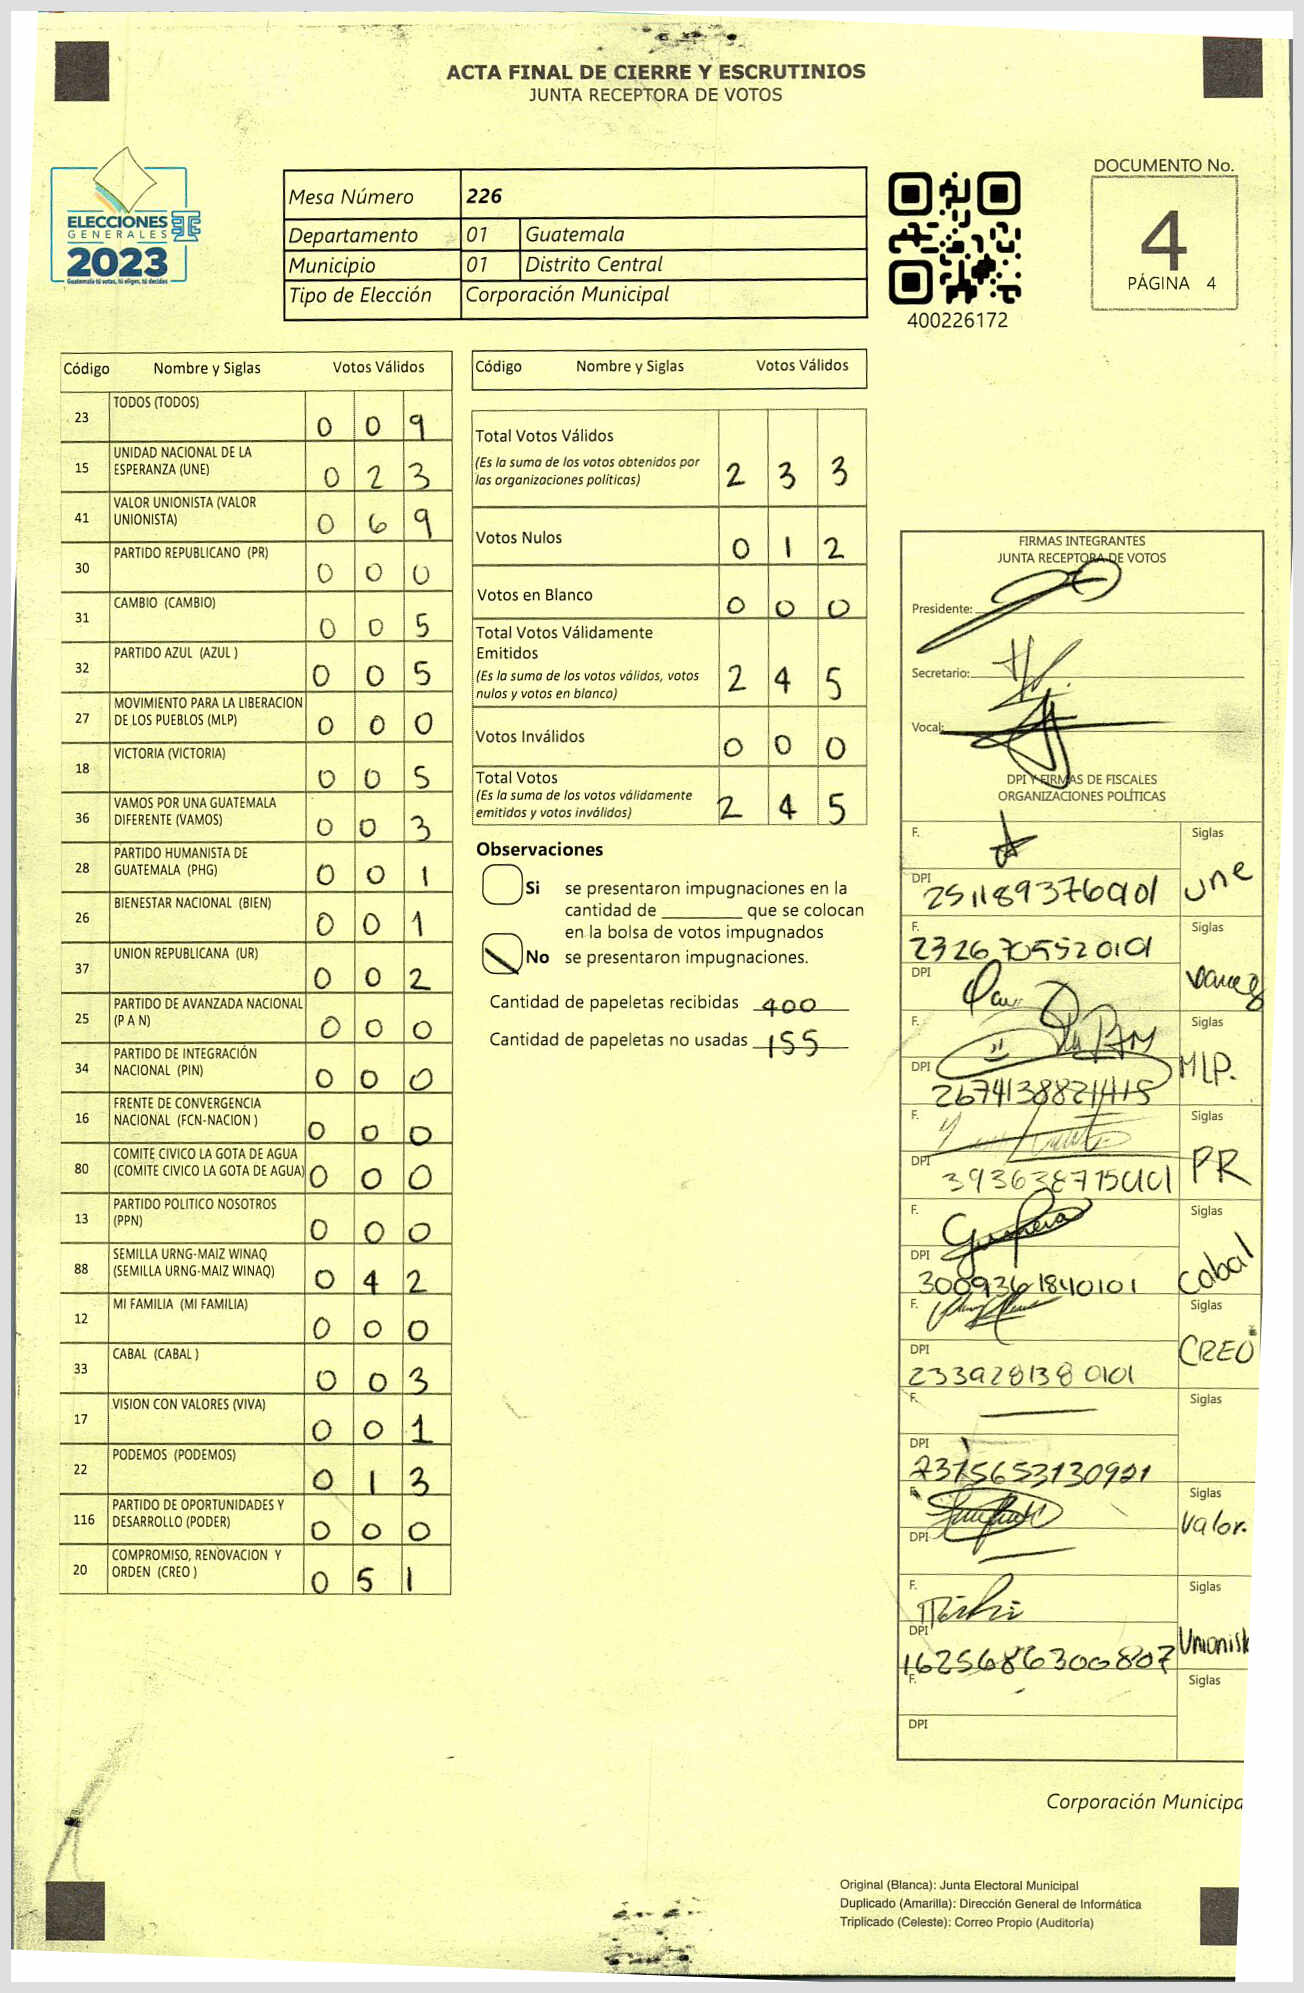 ACTA FINAL DE CIERRE Y ESCRUTINIOS
JUNTA RECEPTORA DE VOTOS
ELECCIONES
GENERALES
2023
Guatemala tú votas, tú eliges, tú decides
Mesa Número 226
Departamento 01 Guatemala
Municipio 01 Distrito Central
Tipo de Elección Corporación Municipal
400226172
DOCUMENTO No.
4
PÁGINA 4
Código Nombre y Siglas Votos Válidos
23 TODOS (TODOS) 0 0 9
15 UNIDAD NACIONAL DE LA
ESPERANZA (UNE) 0 2 3
41 VALOR UNIONISTA (VALOR
UNIONISTA) 0 6 9
30 PARTIDO REPUBLICANO (PR) 0 0 0
31 CAMBIO (CAMBIO) 0 0 5
32 PARTIDO AZUL (AZUL ) 0 0 5
27 MOVIMIENTO PARA LA LIBERACION
DE LOS PUEBLOS (MLP) 0 0 0
18 VICTORIA (VICTORIA) 0 0 5
36 VAMOS POR UNA GUATEMALA
DIFERENTE (VAMOS) 0 0 3
28 PARTIDO HUMANISTA DE
GUATEMALA (PHG) 0 0 1
26 BIENESTAR NACIONAL (BIEN) 0 0 1
37 UNION REPUBLICANA (UR) 0 0 2
25 PARTIDO DE AVANZADA NACIONAL
(P A N) 0 0 0
34 PARTIDO DE INTEGRACIÓN
NACIONAL (PIN) 0 0 0
16 FRENTE DE CONVERGENCIA
NACIONAL (FCN-NACION ) 0 0 0
80 COMITE CIVICO LA GOTA DE AGUA
(COMITE CIVICO LA GOTA DE AGUA) 0 0 0
13 PARTIDO POLITICO NOSOTROS
(PPN) 0 0 0
88 SEMILLA URNG-MAIZ WINAQ
(SEMILLA URNG-MAIZ WINAQ) 0 4 2
12 MI FAMILIA (MI FAMILIA) 0 0 0
33 CABAL (CABAL ) 0 0 3
17 VISION CON VALORES (VIVA) 0 0 1
22 PODEMOS (PODEMOS) 0 1 3
116 PARTIDO DE OPORTUNIDADES Y
DESARROLLO (PODER) 0 0 0
20 COMPROMISO, RENOVACION Y
ORDEN (CREO ) 0 5 1
Código Nombre y Siglas Votos Válidos
Total Votos Válidos
(Es la suma de los votos obtenidos por
las organizaciones políticas) 2 3 3
Votos Nulos 0 1 2
Votos en Blanco 0 0 0
Total Votos Válidamente
Emitidos
(Es la suma de los votos válidos, votos
nulos y votos en blanco) 2 4 5
Votos Inválidos 0 0 0
Total Votos
(Es la suma de los votos válidamente
emitidos y votos inválidos) 2 4 5
Observaciones
Si se presentaron impugnaciones en la
cantidad de ________ que se colocan
en la bolsa de votos impugnados
No se presentaron impugnaciones.
Cantidad de papeletas recibidas 400
Cantidad de papeletas no usadas 155
FIRMAS INTEGRANTES
JUNTA RECEPTORA DE VOTOS
Presidente:
Secretario:
Vocal:
DPI Y FIRMAS DE FISCALES
ORGANIZACIONES POLÍTICAS
F. Siglas
DPI 2511893760101 une
F. Siglas
2326705520101
DPI
F. Siglas
DPI MLP.
F. Siglas
DPI PR
F. Siglas
DPI 3009361840101 Cabal
F. Siglas
DPI CREO
2339281380101
F. Siglas
DPI
F. Siglas
DPI Valor.
F. Siglas
DPI
1625686300807
F. Siglas
DPI
Corporación Municipa
Original (Blanca): Junta Electoral Municipal
Duplicado (Amarilla): Dirección General de Informática
Triplicado (Celeste): Correo Propio (Auditoría)